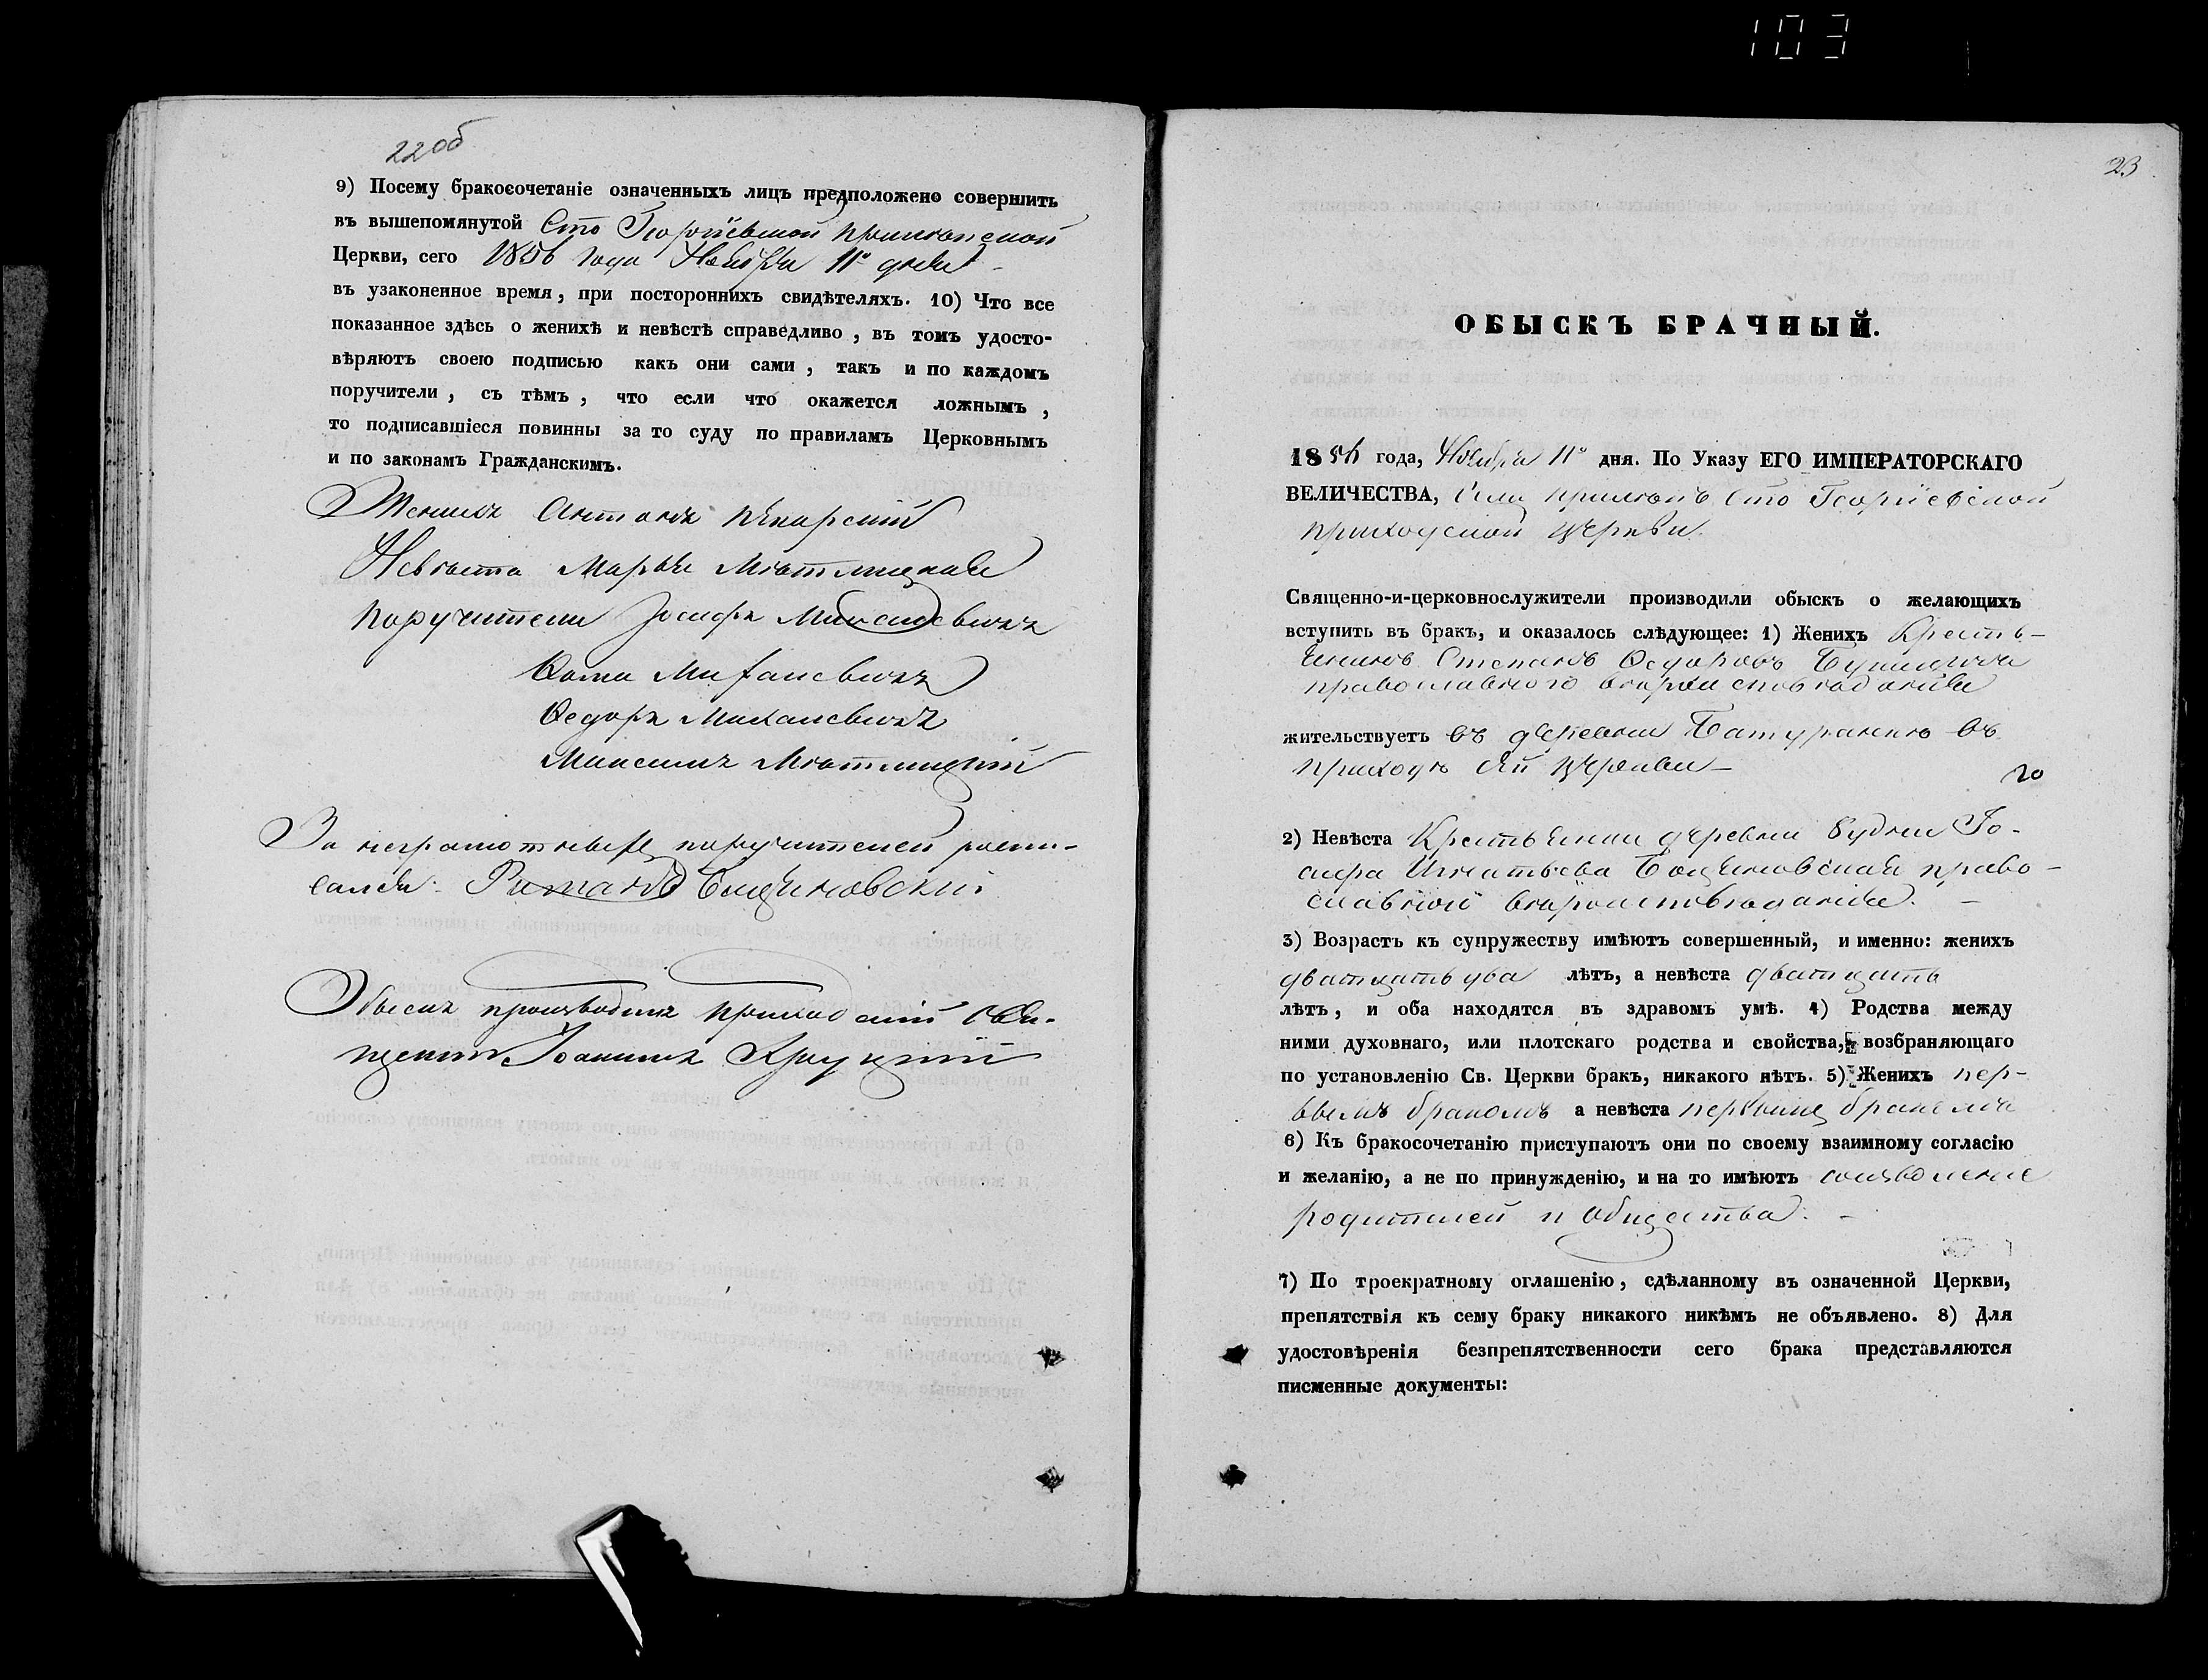 103
22об
9) Посему бракосочетаніе означенныхъ лицъ предположено совершить
въ вышепомянутой Сто Георгіевской
Церкви, сего 1856 года Ноября 11º дня
въ узаконенное время, при постороннихъ свидѣтеляхъ. 10) Что все
показанное здѣсь о женихѣ и невѣстѣ справедливо, въ томъ удосто-
вѣряютъ своею подписью какъ они сами, такъ и по каждомъ
поручители, съ тѣмъ, что если что окажется ложнымъ,
то подписавшіеся повинны за то суду по правиламъ Церковнымъ
и по законамъ Гражданскимъ.
Женихъ Антонъ Пекарскій
Невѣста Марья Мѣтлицкая
Поручители Іосифъ
Ѳома Михалевичъ
Ѳедоръ Михалевичъ
Максимъ Мѣтлицкій
За неграмотныхъ поручителей роспи-
сался:
Обыскъ производилъ приходскій Свя-
щенникъ Іоаннъ
23
ОБЫСКЪ БРАЧНЫЙ.
1856 года, Ноября 11º дня. По Указу ЕГО ИМПЕРАТОРСКАГО
ВЕЛИЧЕСТВА, Сто Георгіевской
приходской церкви.
Священно-и-церковнослужители производили обыскъ о желающихъ
вступить въ бракъ, и оказалось слѣдующее: 1) Женихъ Кресть-
янинъ Степанъ Ѳедоровъ
православнаго вѣроисповѣданія
жительствуетъ въ деревни въ
приходѣ сей церкви
го
2) Невѣста Крестьянка деревни Будки Іо-
сифа Игнатьева православ-
наго вѣроисповѣданія.
3) Возрастъ къ супружеству имѣютъ совершенный, и именно: женихъ
дватцать два лѣтъ, а невѣста дватцать
лѣтъ, и оба находятся въ здравомъ умѣ. 4) Родства между
ними духовнаго, или плотскаго родства и свойства, возбраняющаго
по установленію Св. Церкви бракъ, никакого нѣтъ. 5) Женихъ пер-
вымъ бракомъ а невѣста первымъ бракомъ
6) Къ бракосочетанію приступаютъ они по своему взаимному согласію
и желанію, а не по принужденію, и на то имѣютъ соизволеніе
родителей и общества.
7) По троекратному оглашенію, сдѣланному въ означенной Церкви,
препятствія къ сему браку никакого никѣмъ не объявлено. 8) Для
удостовѣренія безпрепятственности сего брака представляются
писменные документы: